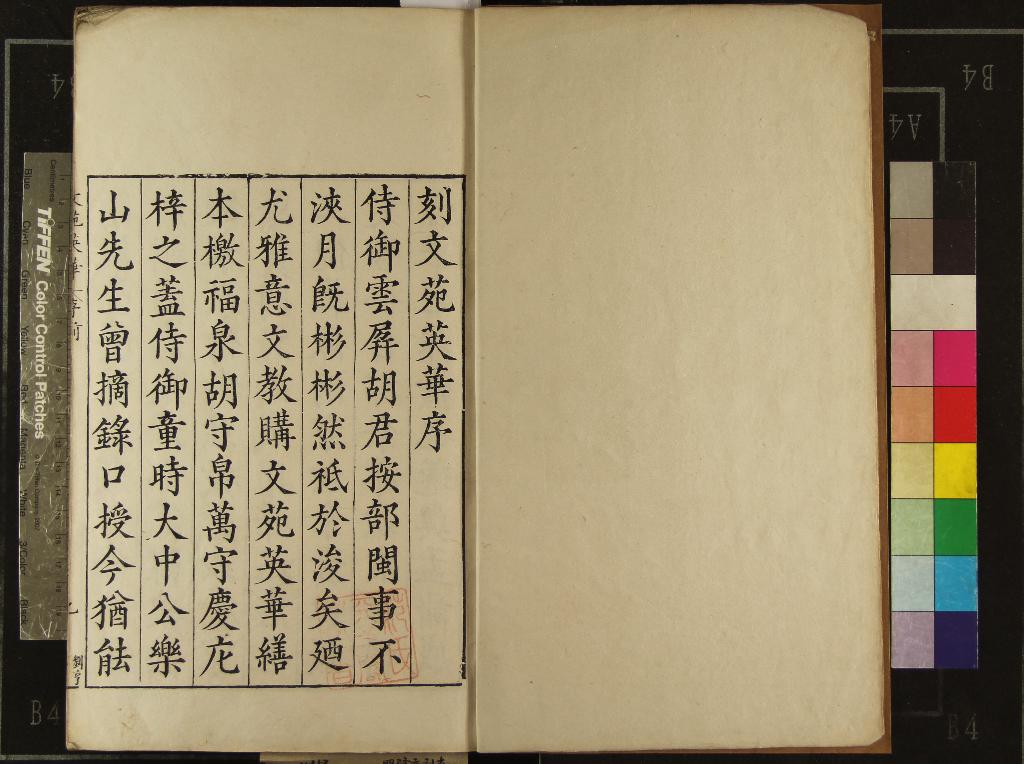 刻文苑英華序
侍御雲屏胡君按部閩事不
浹月旣彬彬然祗於浚矣廼
尤雅意文教購文苑英華繕
本檄福泉胡守帛萬守慶庀
梓之蓋侍御童時大中公樂
山先生曾摘錄口授今猶能
文苑英華 序前
B4
B4
A4
B4
B4
Centimetres
Blue
Cyan
Green
Yellow
Red
Magenta
White
3/Color
Black
TIFFEN Color Control Patches